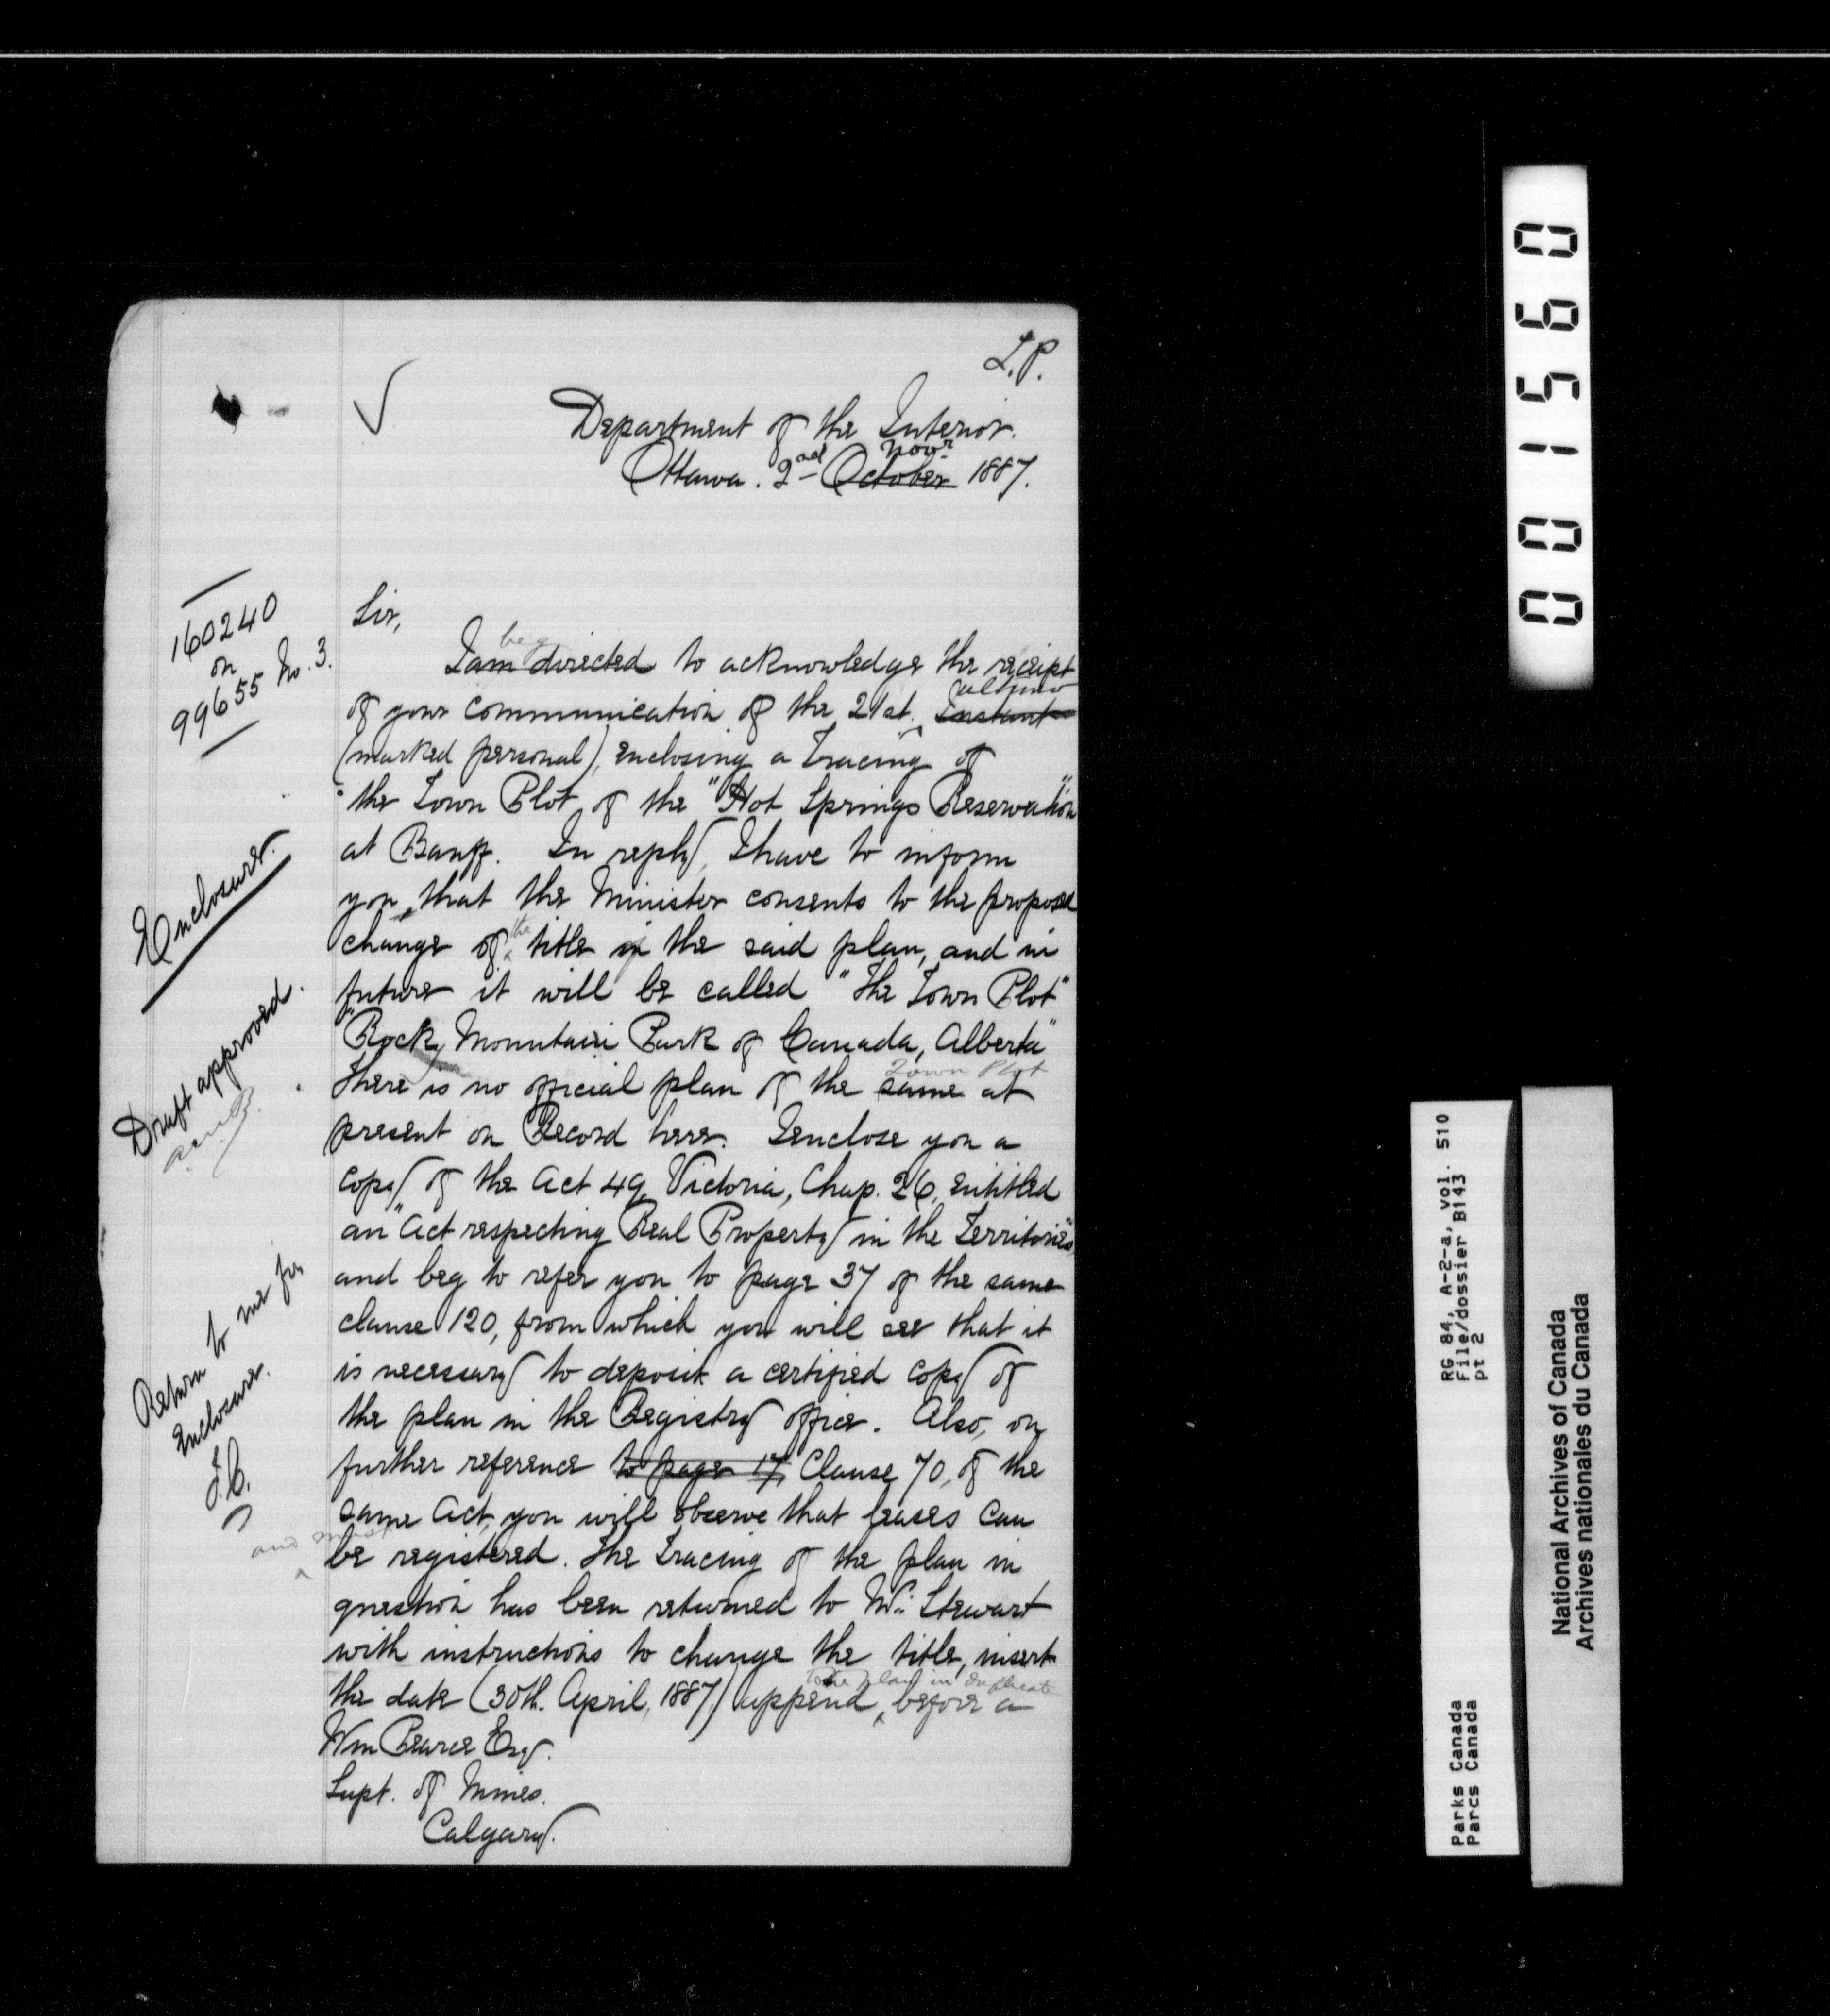 L.P.
Department of the Interior.
Ottawa. 2nd October Novr 1887.
160240
on
99655 No. 3.
Sir,
I am directed beg to acknowledge the receipt
of your communication of the 21st. Instant ultimo
(marked personal), enclosing a Tracing of
the Town Plot of the "Hot Springs Reservation"
at Banff. In reply, I have to inform
you, that the Minister consents to the proposed
change of the title of the said plan, and in
future it will be called "The Town Plot"
"Rocky Mountain Park of Canada, Alberta"
There is no official plan of the same Town Plot at
present on Record here. I enclose you a
copy of the Act 49, Victoria, Chap. 26, entitled
an "Act respecting Real Property in the Territories"
and beg to refer you to page 37 of the same
clause 120, from which you will see that it
is necessary to deposit a certified copy of
the plan in the Registry office. Also, on
further reference to page 17, Clause 70, of the
same Act, you will observe that leases can
and must be registered. The Tracing of the plan in
question has been returned to Mr. Stewart
with instructions to change the title, insert
the date (30th. April, 1887) append to the plan in duplicate, before a
Wm Pearce Esq.
Supt. of Mines.
Calgary.
Enclosure.
Draft approved.
Return to me for
Enclosure.
001560
RG 84, A-2-a, vol. 510
File/dossier B143
pt 2
Parks Canada
Parcs Canada
National Archives of Canada
Archives nationales du Canada